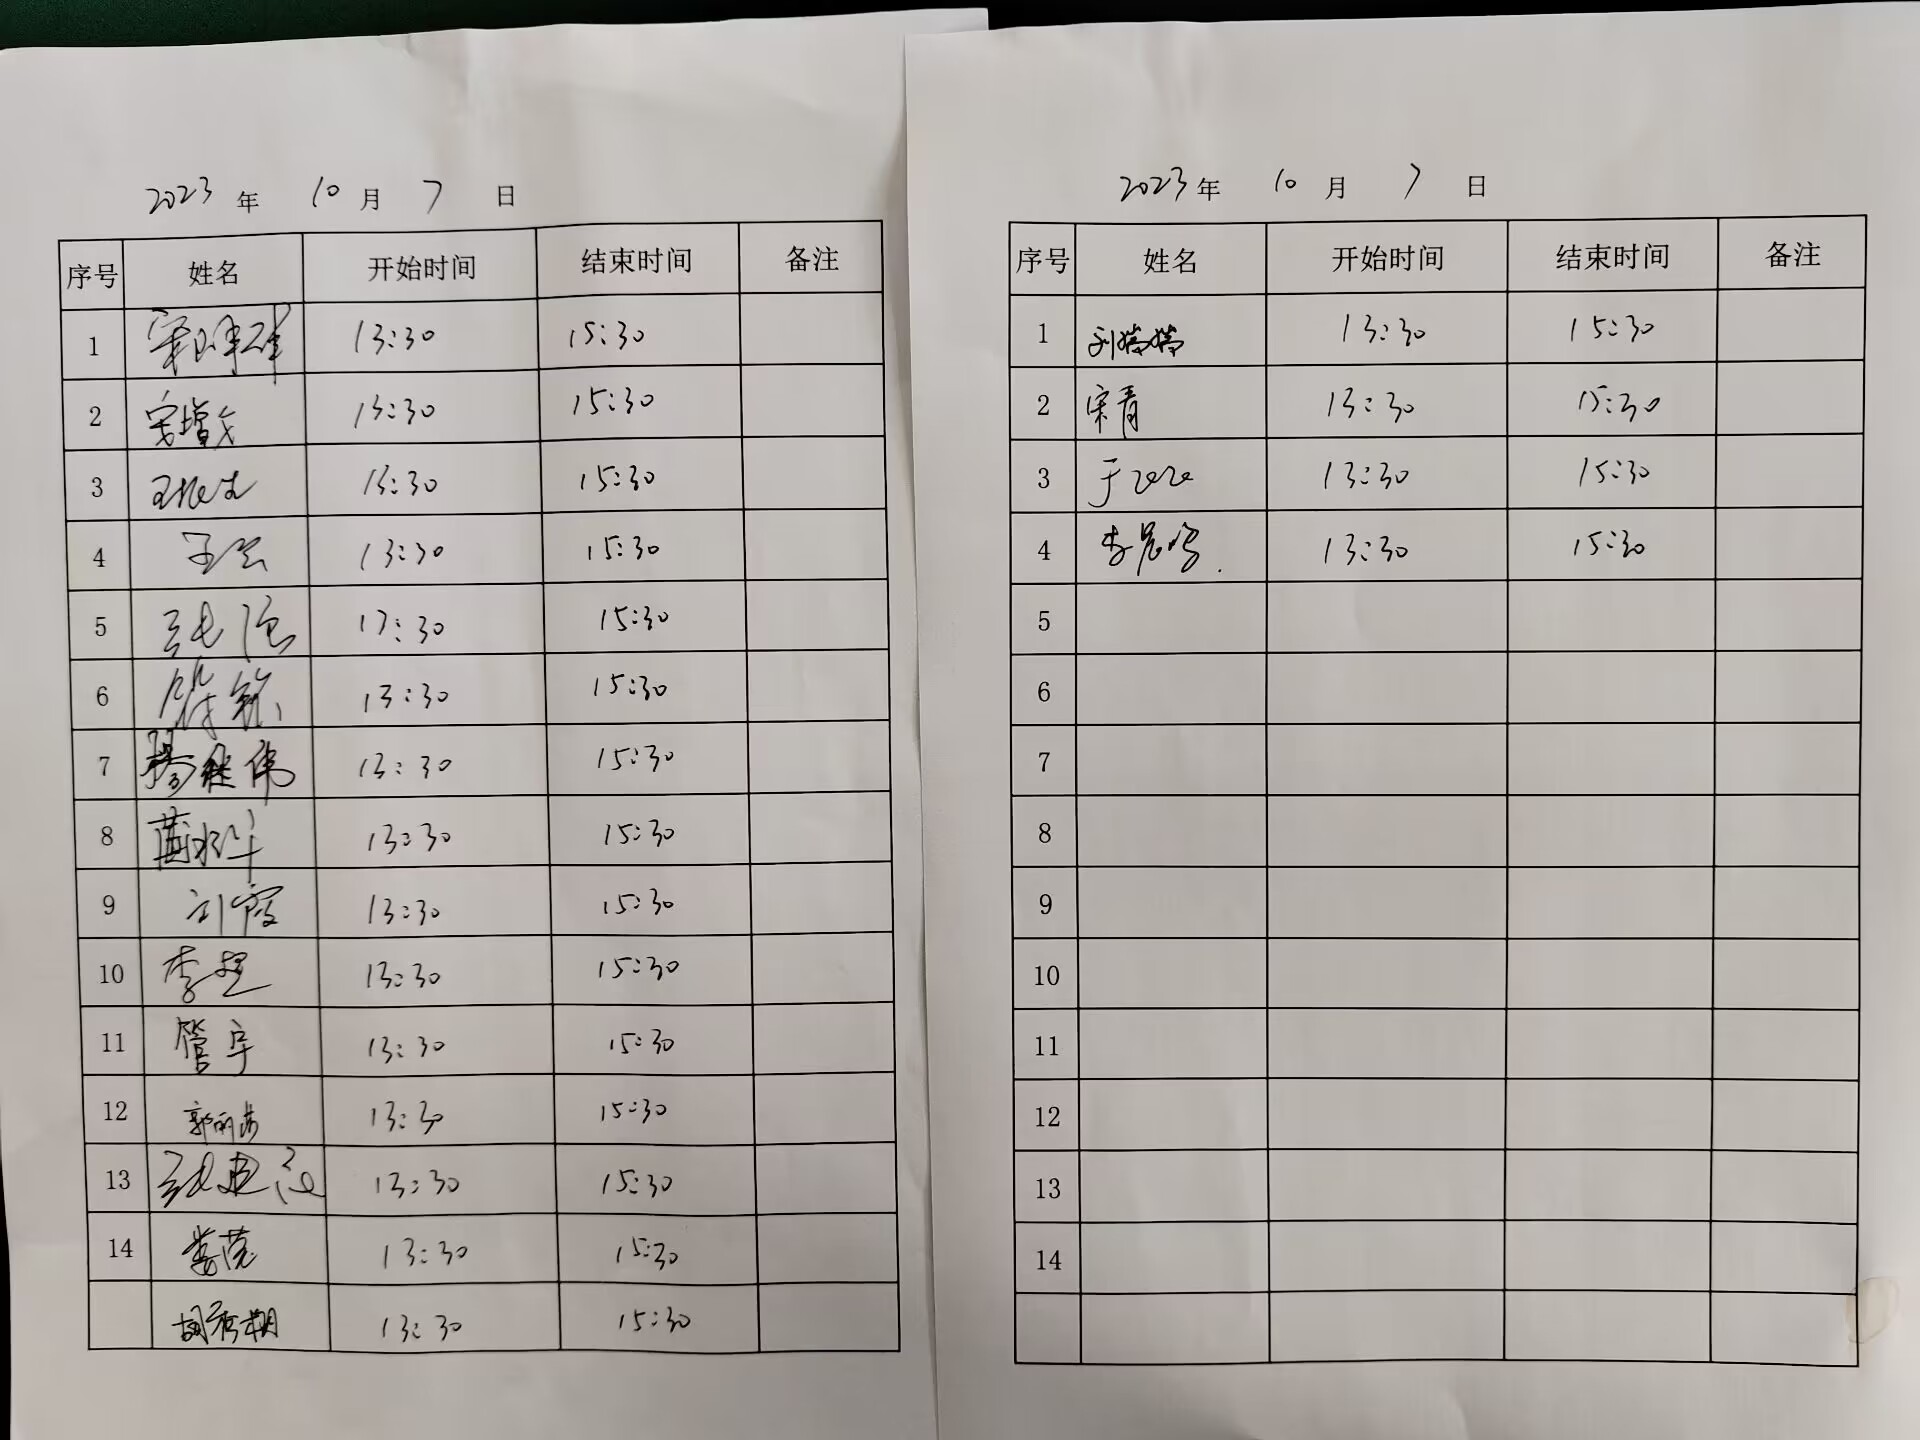 2023 年 10 月 7 日
序号 姓名 开始时间 结束时间 备注
1 13:30 15:30
2 13:30 15:30
3 13:30 15:30
4 13:30 15:30
5 13:30 15:30
6 13:30 15:30
7 杨胜伟 13:30 15:30
8 13:30 15:30
9 刘霞 13:30 15:30
10 李 13:30 15:30
11 管宇 13:30 15:30
12 郭 13:30 15:30
13 13:30 15:30
14 娄莹 13:30 15:30
胡 13:30 15:30
2023 年 10 月 7 日
序号 姓名 开始时间 结束时间 备注
1 刘婷婷 13:30 15:30
2 宋青 13:30 15:30
3 于 13:30 15:30
4 李 13:30 15:30
5
6
7
8
9
10
11
12
13
14